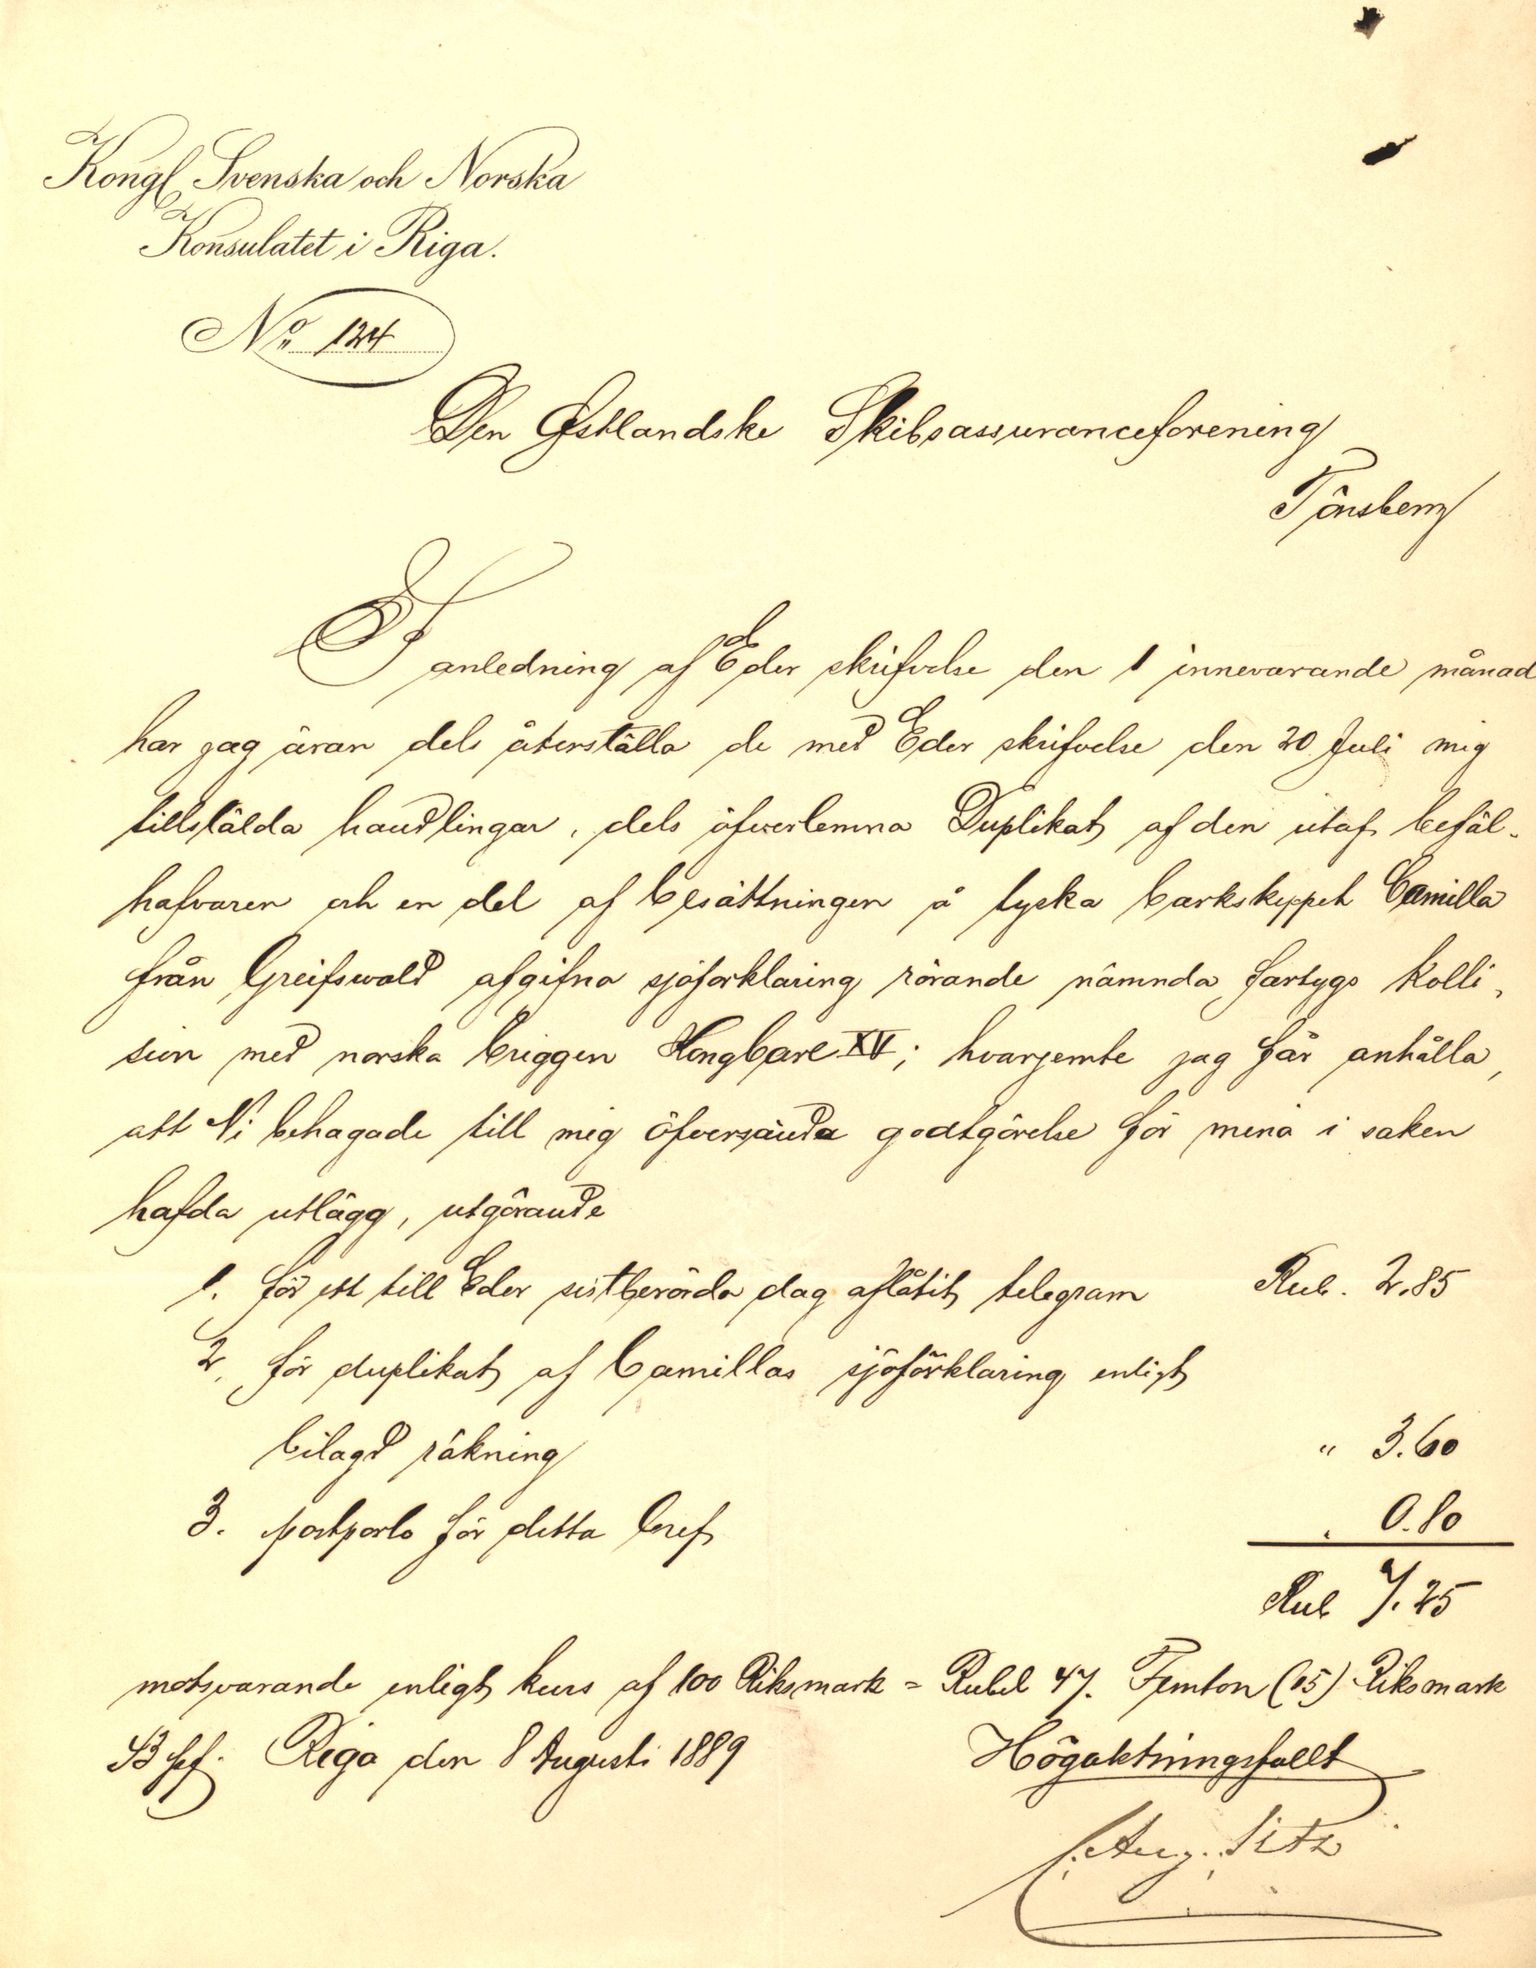 Kongl. Svenska och Norska
Konsulatet i Riga.
No 124
Den Østlandske Skibsassuranceforening
Tönsberg
I anledning af Eder skrifvelse den 1 innevarande månad
har jag äran dels återställa de med Eder skrifvelse den 20 Juli mig
tillstälda handlingar, dels öfverlemna Duplikat af den utaf befäl-
hafvaren och en del af besättningen å tyska barkskeppet Camilla
från Greifswald afgifna sjöforklaring rörande nämnda fartygs kolli-
sion med norska briggen Kong Carl XV; hvarjemte jag får anhålla,
att Ni behagade till mig öfversända godtgörelse för mina i saken
hafda utlägg, utgörande
1. för ett till Eder sistberörda dag aflåtit telegram Rub. 2.85
2. för duplikat af Camillas sjöförklaring enligt
bilagd räkning " 3.60
3. postporto för detta bref " 0.80
Rub 7.25
motsvarande enligt kurs af 100 Riksmark = Rubel 47. Femton (15) Riksmark
Riga den 8 Augusti 1889 Högaktningsfullt
Aug.